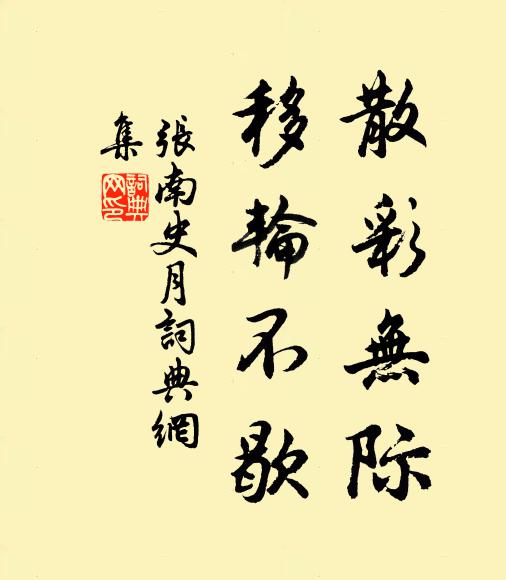 散彩無际
移輪不歇
張南史月詞典網
集
詞典
网印